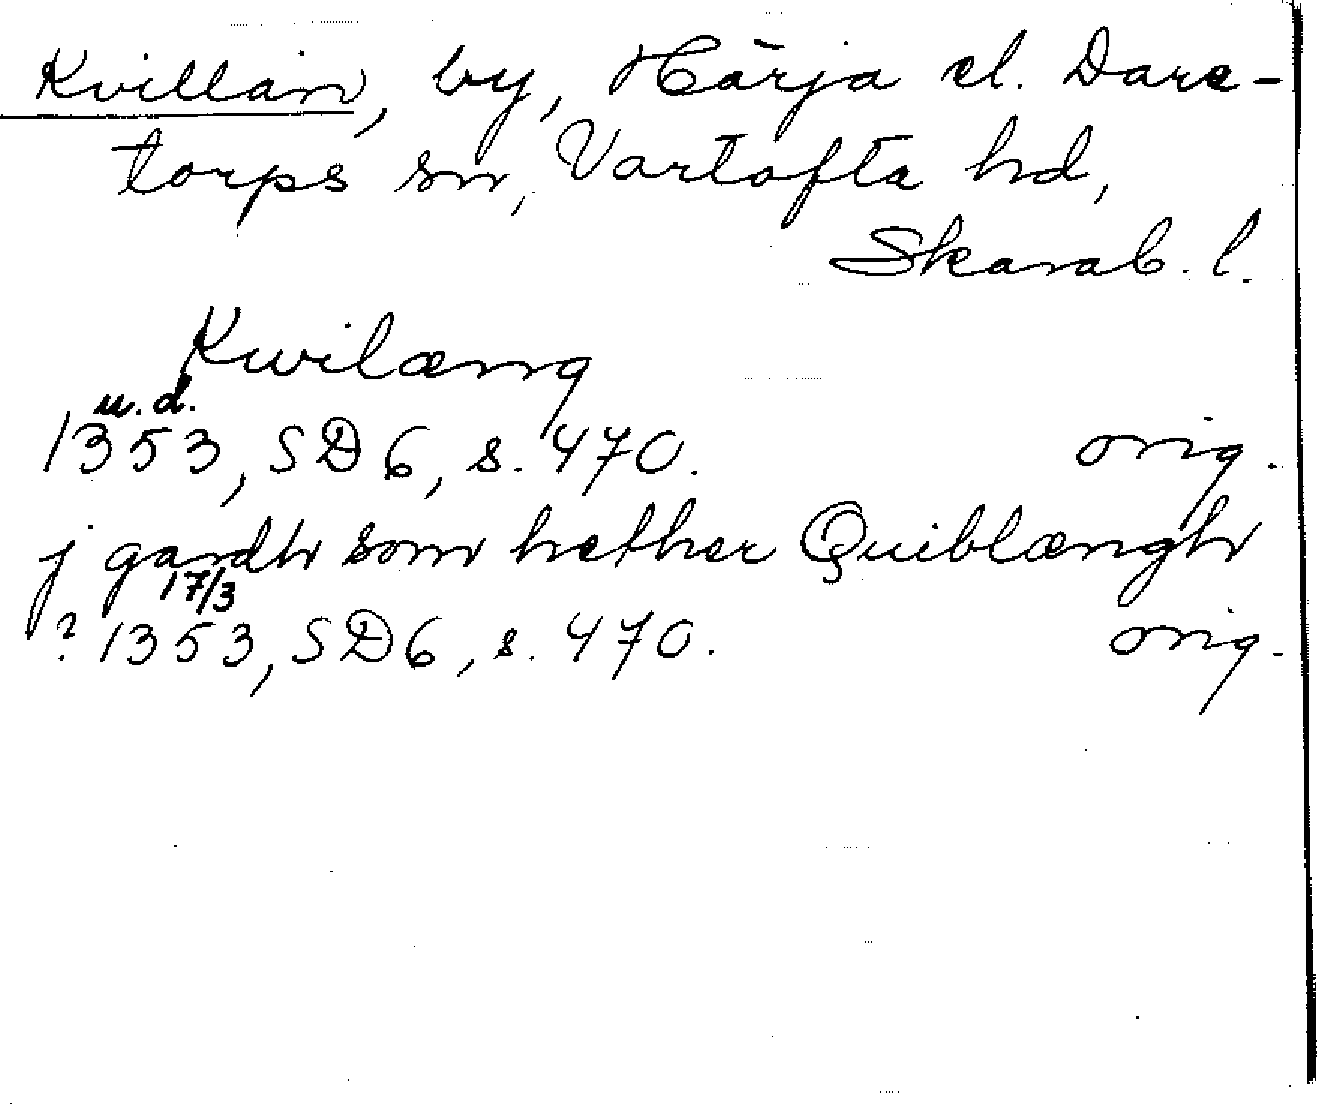 Kvillän, by, Härja el. Dare-
torps sn, Vartofta hd,
Skarab. l.
Kwilæng
u. d.
1353, SD 6, s. 470. orig.
j gardh som hether Quiblængh
17/3
? 1353, SD 6, s. 470. orig.